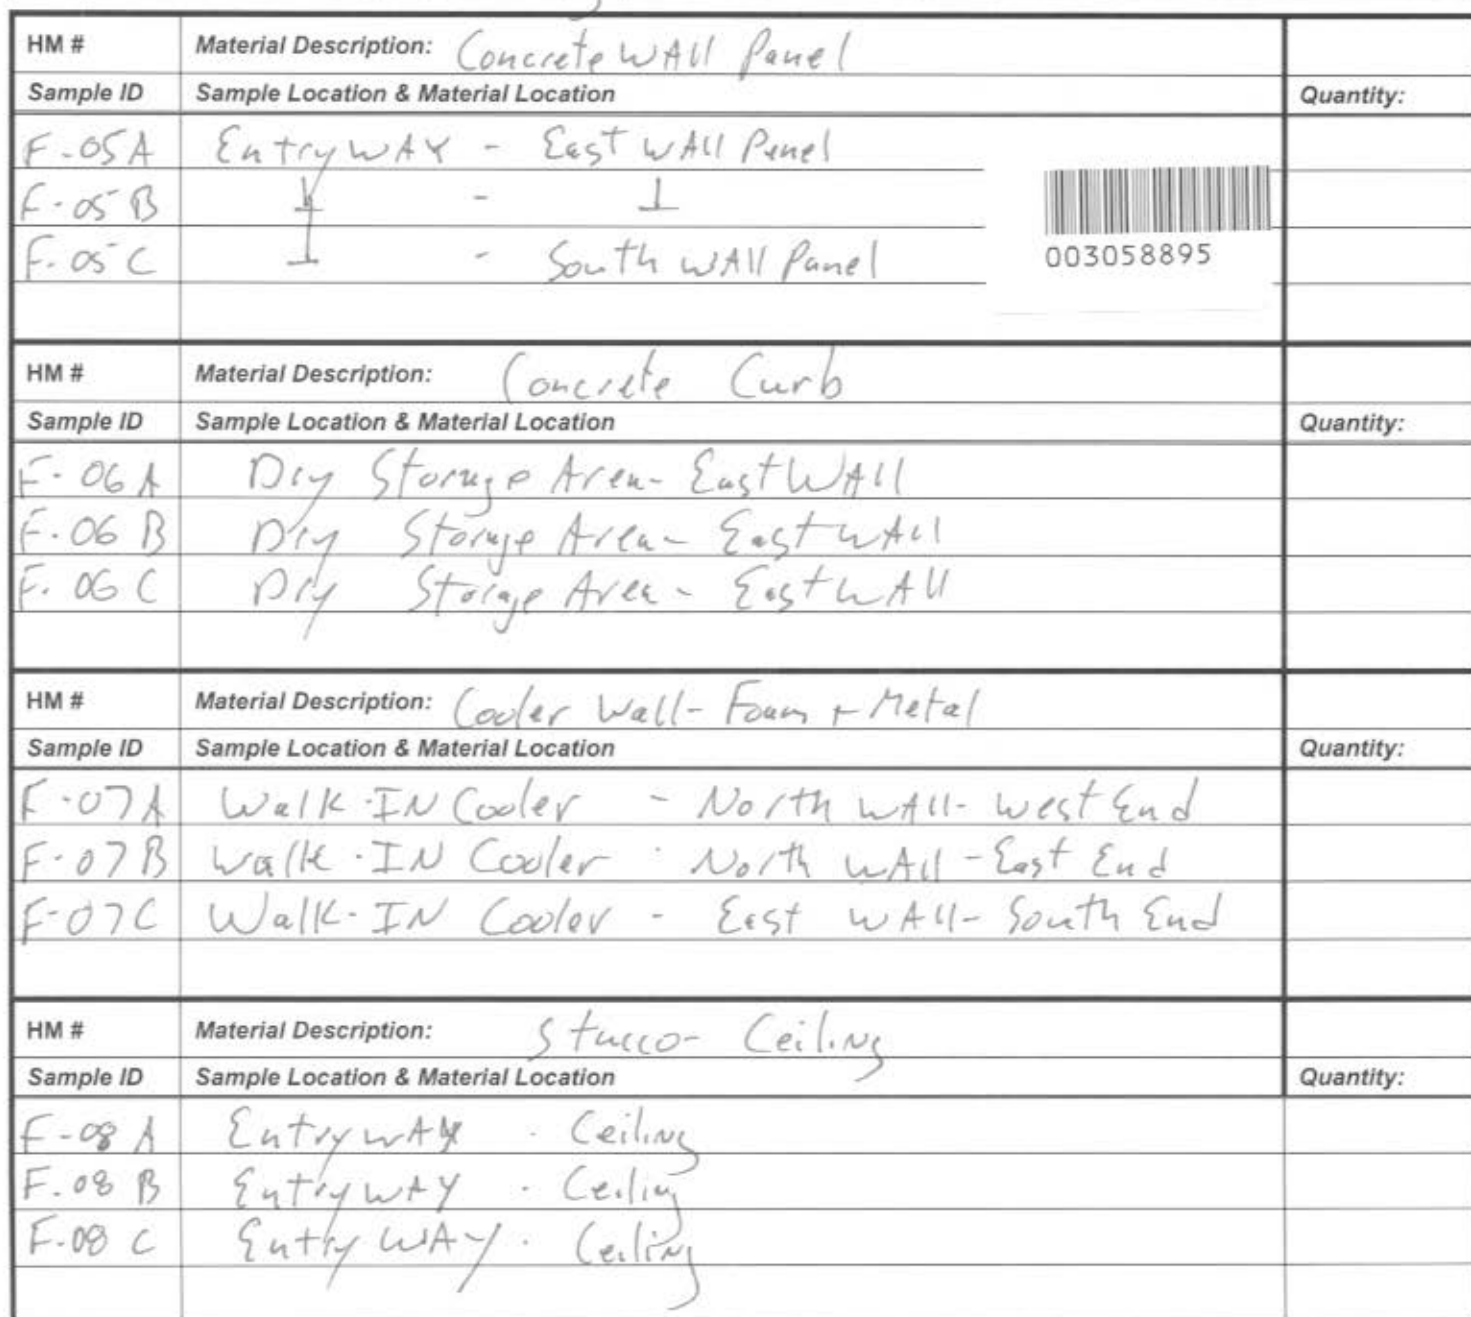 HM # Material Description: Concrete WAll Panel
Sample ID Sample Location & Material Location Quantity:
F-05A EntryWAY - East WAll Panel
F-05B ⊥ - ⊥
F-05C ⊥ - South WAll Panel
003058895
HM # Material Description: Concrete Curb
Sample ID Sample Location & Material Location Quantity:
F-06A Dry Storage Area- East WAll
F-06B Dry Storage Area- East WAll
F-06C Dry Storage Area- East WAll
HM # Material Description: Cooler Wall- Foam + Metal
Sample ID Sample Location & Material Location Quantity:
F-07A Walk-IN Cooler - North WAll- West End
F-07B Walk-IN Cooler - North WAll- East End
F-07C Walk-IN Cooler - East WAll- South End
HM # Material Description: Stucco- Ceiling
Sample ID Sample Location & Material Location Quantity:
F-08A EntryWAY - Ceiling
F-08B EntryWAY - Ceiling
F-08C EntryWAY - Ceiling